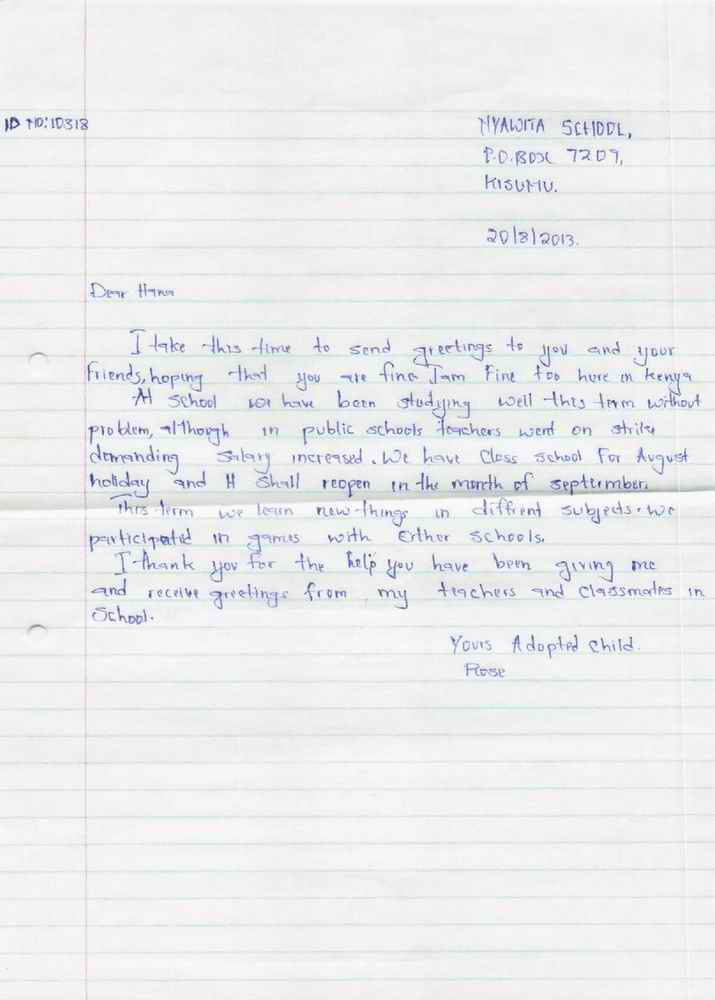 ID NO: 10318
NYAWITA SCHOOL,
P.O. BOX 7209,
KISUMU.
20/8/2013.
Dear Hana
I take this time to send greetings to you and your
friends, hoping that you are fine I am Fine too here in Kenya
At school we have been studying well this term without
problem, although in public schools teachers went on strike
demanding salary increased. We have Closs school For August
holiday and It Shall reopen in the month of september.
This term we learn new things in diffrent subjects. we
participated in games with Other schools.
I thank you for the help you have been giving me
and receive greetings from my teachers and classmates in
School.
Yours Adopted child.
Rose